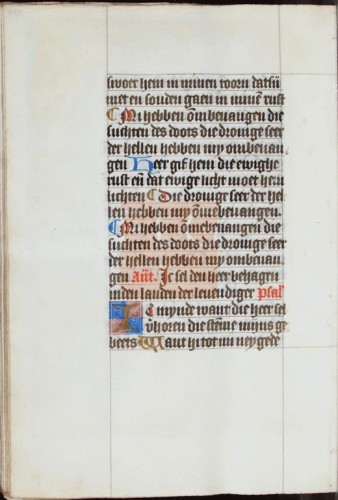 swoer hem in minen toorn datsij
niet en souden gaen in mine rust
Mi hebben ombevangen die
suchten des doots die drouige seer
der hellen hebben my ombevan
gen Heer gif hem die ewighe
rust en dat ewige licht moet hem
lichten Die drouige seer der hel
len hebben my ombevangen.
Mi hebben ombevangen die
suchten des doots die drouige seer
der hellen hebben my ombevan
gen Ant. Ic sel den heer behagen
in den landen der levendiger psal
Ic mynde want die heer sel
verhoren die stemme mijns ge
beets Want hi tot mi neygede